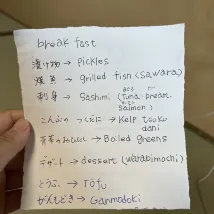 break fast
漬け物 → Pickles
→ grilled fish (Sawara)
刺身 → Sashimi (Tuna・bream・
Salmon)
こんぶの つくだに → Kelp tsuku
dani
→ Boiled greens
デザート → dessert (warabimochi)
とうふ → Tōfu
がんもどき → Ganmodoki